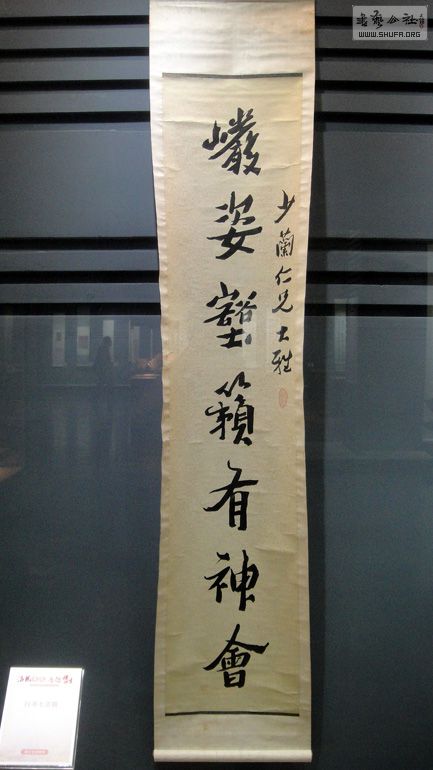 書藝公社
WWW.SHUFA.ORG
少蘭仁兄大雅
巖姿壑籟有神會
行书七言联